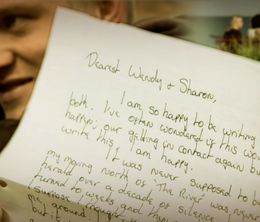 Dearest Wendy & Sharon,
I am so happy to be writing
both. I've often wondered if this wou
happen, our getting in contact again bu
write this I am happy.
It was never supposed to b
my moving north of The River was never
herald over a decade of silence
turned to weeks and then
suppose
my ground
but it